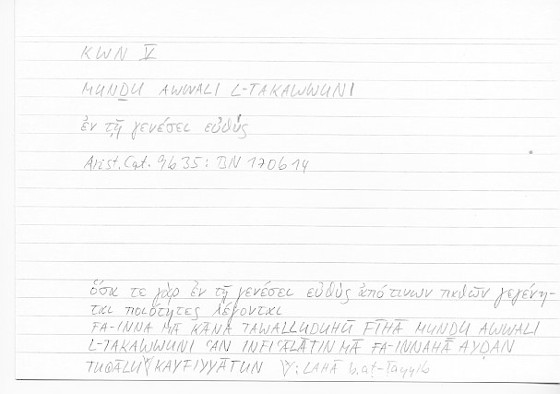 KWN V̅
MUNḎU AWWALI L-TAKAWWUNI
ἐν τῇ γενέσει εὐθύς
Arist. Cat. 9b35: BN 170b14
ὅσα τε γὰρ ἐν τῇ γενέσει εὐθὺς ἀπό τινων παθῶν γεγένη-
ται ποιότητες λέγονται
FA-INNA MĀ KĀNA TAWALLUDUHŪ FĪHĀ MUNḎU AWWALI
L-TAKAWWUNI ʿAN INFIʿĀLĀTIN MĀ FA-INNAHĀ AYḌAN
TUQĀLU Y KAYFIYYĀTUN Y: LAHĀ b.aṭ-Ṭayyib